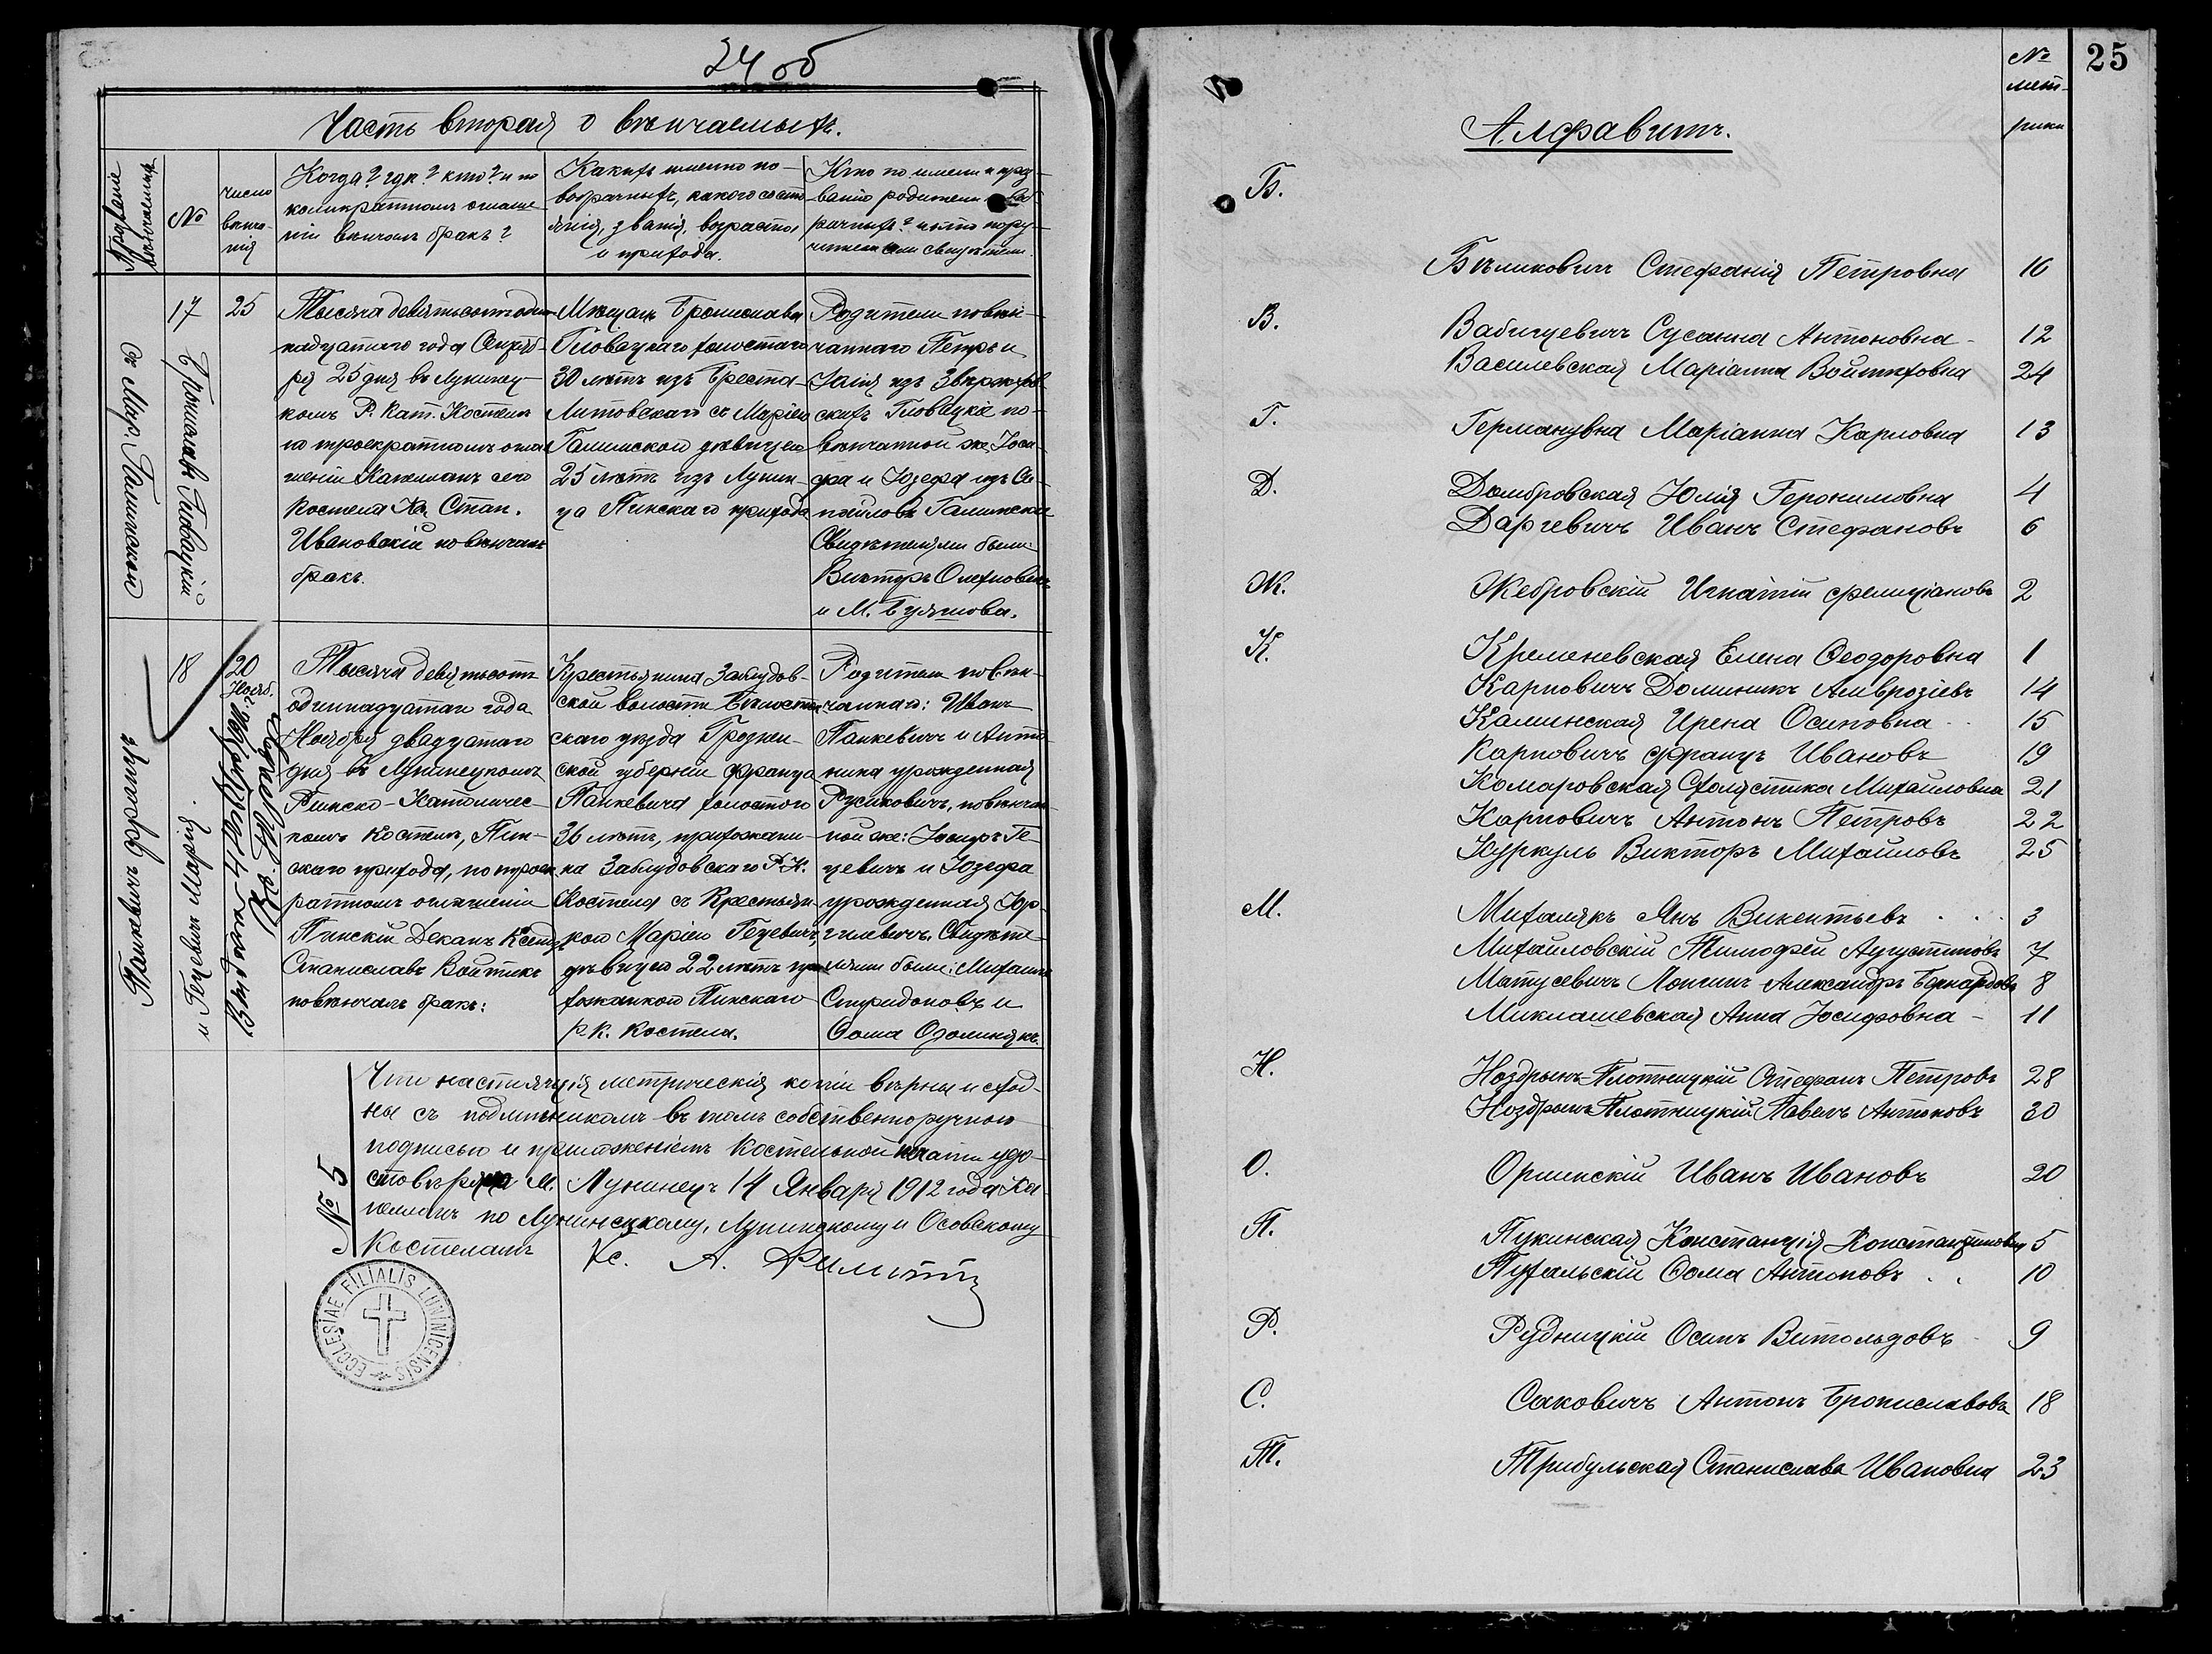 24 об
Часть вторая о вѣнчаемыхъ.
Прозваніе вѣнчаемыхъ
№
число вѣнча-нія
Когда? гдѣ? кто? и по
коликратномъ оглаше-
ніи вѣнчалъ бракъ?
Какихъ именно но-
вобрачныхъ, какого состо-
янія, званія, возраста,
и прихода.
Кто по имени и проз-
ванію родители ново-
брачныхъ? и кто пору-
чители или свидѣтели.
Брониславъ Гловацкій
съ Мар. Галинской
17
25
Тысяча девятьсотъ один-
надцатаго года Сентяб-
ря 25 дня въ Лунинец-
комъ Р. Кат. Костелѣ
по троекратномъ огла-
шеніи Капеланъ сего
Костела Кс. Стан.
Ивановскій повѣнчалъ
бракъ.
Мѣщанъ Бронислава
Гловацкаго холостаго
30 лѣтъ изъ Бреста-
Литовскаго съ Маріею
Галинской дѣвицею
25 лѣтъ изъ Лунин-
ца Пинскаго прихода
Родители повѣн-
чаннаго Петръ и
Юлія изъ
Гловацкіе по-
вѣнчанной же Іоси-
фа и Юзефа изъ
Галинскіе
Свидѣтелями были:
Викторъ
и М.
18
20
Нояб.
Францишкъ Панкевичъ
и Гецевичъ Марія.
Тысяча девятьсотъ
одиннадцатаго года
Ноября двадцатаго
дня въ Лунинецкомъ
Римско-Католичес-
комъ Костелѣ, Пин-
скаго прихода, по троек-
ратномъ оглашеніи
Пинскій Деканъ Ксендзъ
Станиславъ Войтикъ
повѣнчалъ бракъ:
Крестьянина Заблудов-
ской волости Бѣлосток-
скаго уѣзда Гроднен-
ской губерніи Франца
Панкевича холостого
36 лѣтъ, прихожани-
на Заблудовскаго Р-К.
Костела съ Крестьян-
кой Маріею Гецевичъ,
дѣвицею 22 лѣтъ при-
хожанкой Пинскаго
Р. К. Костела.
Родители повѣн-
чаннаго: Иванъ
Панкевичъ и Анто-
нина урожденная
Русиковичъ, повѣнчан-
ной же: Іосифъ Ге-
цевичъ и Юзефа
урожденная Юр-
гилевичъ. Свидѣте-
лями были: Михаилъ
Спиридоновъ и
Ѳома Озолинякъ.
Что настоящія метрическія копіи вѣрны и сход-
ны съ подлинникомъ въ томъ собственноручною
подписью и приложеніемъ Костельной печати удо-
стовѣряю М. Лунинецъ 14 Января 1912 года Ка-
пеланъ по Лунинецкому, Лунинскому и Осовскому
Костеламъ
Кс. А.
№ 5
ECCLESIAE FILIALIS LUNINICENSIS
25
№
мет-
рики
Алфавитъ.
Б.
Бѣликовичъ Стефанія Петровна 16
В.
Вабищевичъ Сусанна Антоновна 12
Василевская Маріанна Войтѣховна 24
Г.
Германувна Маріанна Карловна 13
Д.
Домбровская Юлія Геронимовна 4
Даргевичъ Иванъ Стефановъ 6
Ж.
Жебровскій Игнатій Фелиціановъ 2
К.
Кременевская Елена Ѳеодоровна 1
Карповичъ Доминикъ Амврозіевъ 14
Калинская Ирена Осиповна 15
Карповичъ Францъ Ивановъ 19
Комаровская Схоластика Михайловна 21
Карповичъ Антонъ Петровъ 22
Куркуль Викторъ Михайловъ 25
М.
Михалякъ Янъ Викентьевъ 3
Михайловскій Тимофей Аугустиновъ 7
Матусевичъ Лонгинъ Александръ Бернардовъ 8
Миклашевская Анна Іосифовна 11
Н.
Ноздрынъ-Плотницкій Стефанъ Петровъ 28
Ноздрынъ Плотницкій Павелъ Антоновъ 30
О.
Орлинскій Иванъ Ивановъ 20
П.
Пукинская Констанція Константиновна 5
Пухальскій Ѳома Антоновъ 10
Р.
Рудницкій Осипъ Витольдовъ 9
С.
Саковичъ Антонъ Брониславовъ 18
Т.
Трибульская Станислава Ивановна 23